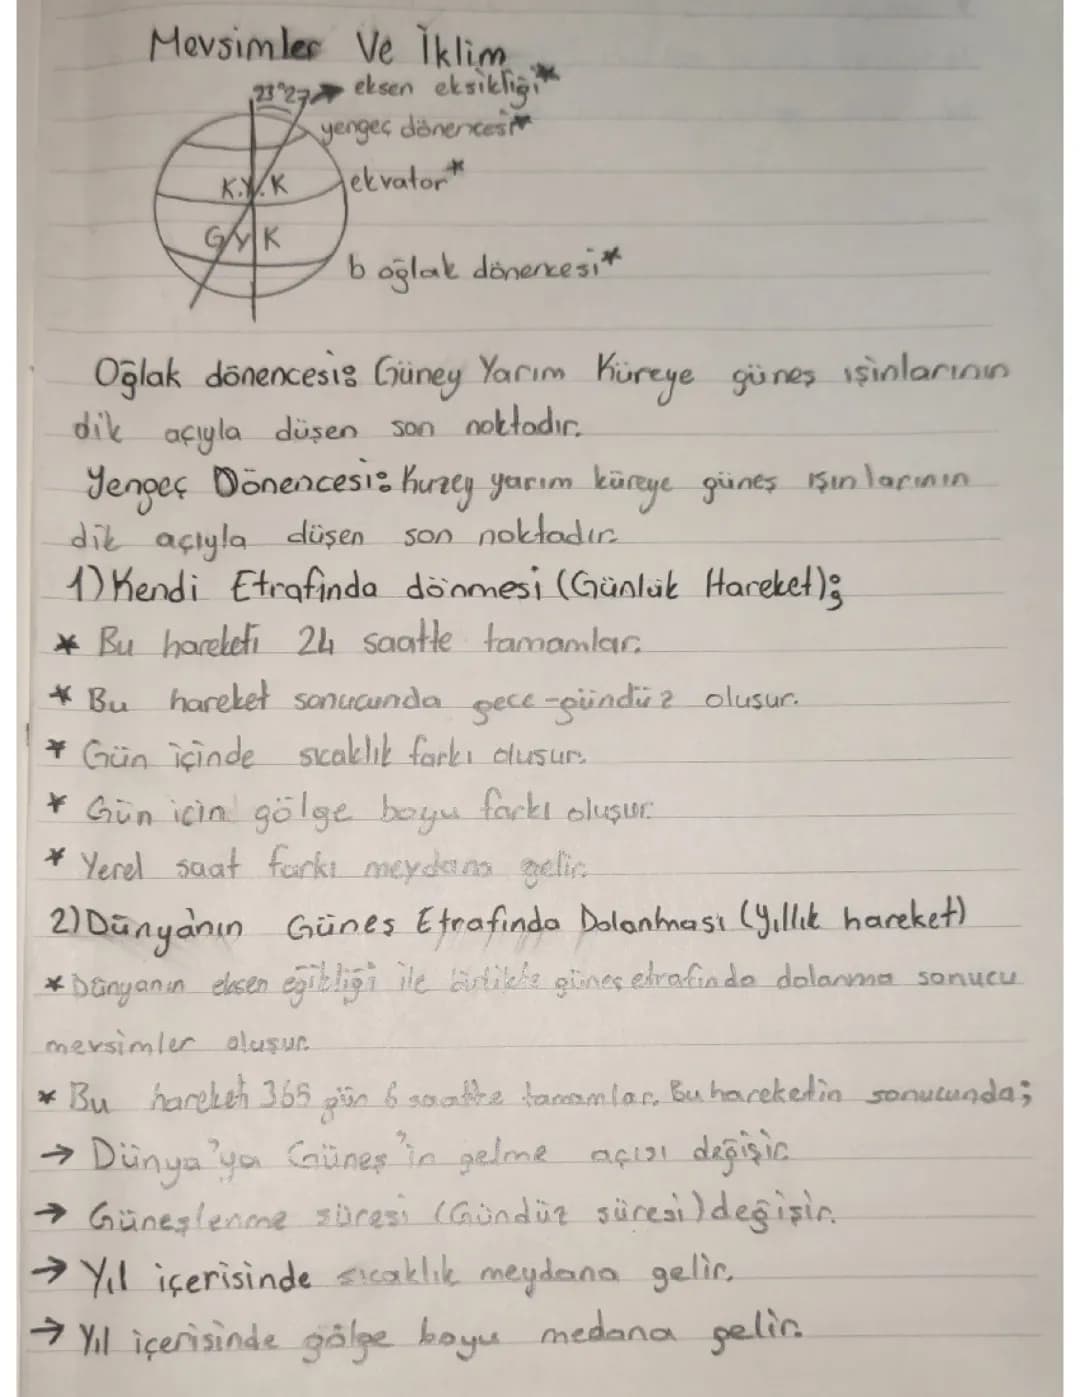 Mevsimler Ve İklim
23°27 eksen eksikliği*
yengeç dönencesi*
K.Y.K
ekvator*
GYK
b oğlak dönencesi*
Oğlak dönencesi: Güney Yarım Küreye güneş ışınlarının
dik açıyla düşen son noktadır.
Yengeç Dönencesi: Kuzey yarım küreye güneş ışınlarının
dik açıyla düşen son noktadır.
1) Kendi Etrafında dönmesi (Günlük Hareket);
* Bu hareketi 24 saatte tamamlar.
* Bu hareket sonucunda gece-gündüz oluşur.
* Gün içinde sıcaklık farkı oluşur.
* Gün için gölge boyu farkı oluşur.
* Yerel saat farkı meydana gelir.
2) Dünyanın Güneş Etrafında Dolanması (Yıllık hareket)
* Dünyanın eksen eğikliği ile birlikte güneş etrafında dolanma sonucu
mevsimler oluşur.
* Bu hareketi 365 gün 6 saatte tamamlar. Bu hareketin sonucunda;
→ Dünya'ya Güneş'in gelme açısı değişir.
→ Güneşlenme süresi (Gündüz süresi) değişir.
→ Yıl içerisinde sıcaklık meydana gelir.
→ Yıl içerisinde gölge boyu medana gelir.